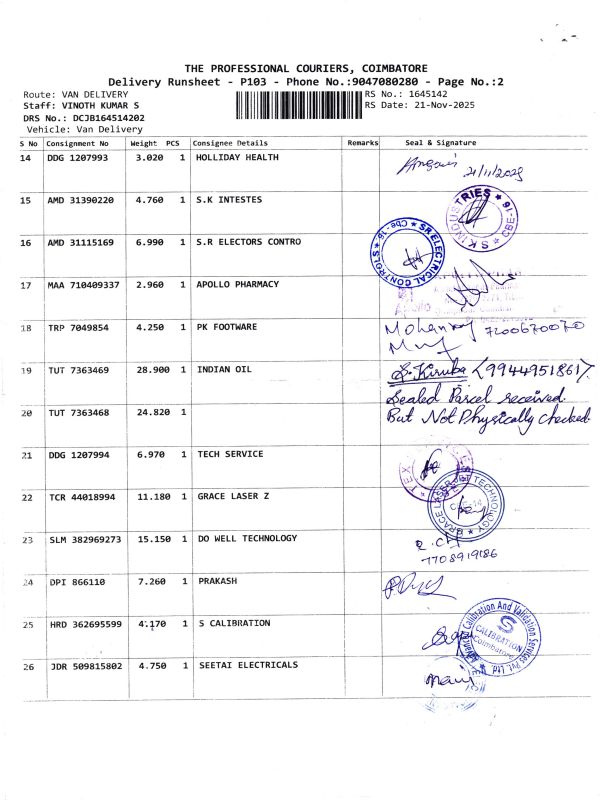 THE PROFESSIONAL COURIERS, COIMBATORE
Delivery Runsheet - P103 - Phone No.:9047080280 - Page No.:2
Route: VAN DELIVERY RS No.: 1645142
Staff: VINOTH KUMAR S RS Date: 21-Nov-2025
DRS No.: DCJB164514202
Vehicle: Van Delivery
S No Consignment No Weight PCS Consignee Details Remarks Seal & Signature
14 DDG 1207993 3.020 1 HOLLIDAY HEALTH 21/11/2025
15 AMD 31390220 4.760 1 S.K INTESTES S K INDUSTRIES ★ CBE-16 ★
16 AMD 31115169 6.990 1 S.R ELECTORS CONTRO ★ SR ELECTRICAL CONTROLS ★ Cbe - 16
17 MAA 710409337 2.960 1 APOLLO PHARMACY Apollo
18 TRP 7049854 4.250 1 PK FOOTWARE Mohanraj 7200670070
19 TUT 7363469 28.900 1 INDIAN OIL S. Kiruba (9944951861)
Sealed Parcel received.
20 TUT 7363468 24.820 1 But Not Physically checked.
21 DDG 1207994 6.970 1 TECH SERVICE
22 TCR 44018994 11.180 1 GRACE LASER Z GRACE LASER TECHNOLOGY
23 SLM 382969273 15.150 1 DO WELL TECHNOLOGY
7708919186
24 DPI 866110 7.260 1 PRAKASH
25 HRD 362695599 4.170 1 S CALIBRATION Advanced Calibration And Validation Services Pvt. Ltd. ★ S CALIBRATION Coimbatore
26 JDR 509815802 4.750 1 SEETAI ELECTRICALS